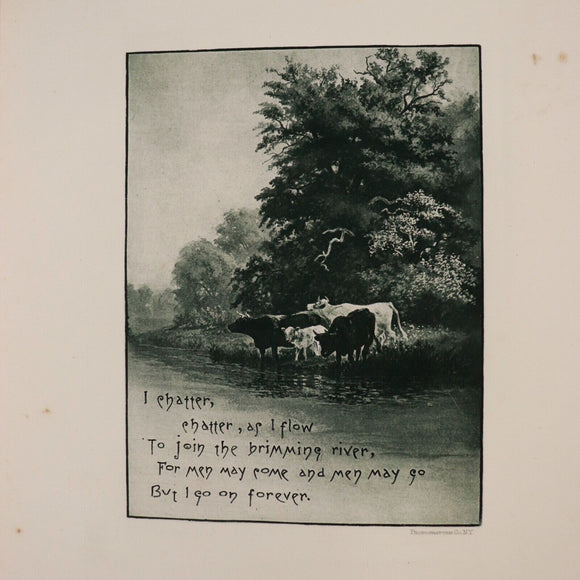 I chatter,
chatter, as I flow
To join the brimming river,
For men may come and men may go
But I go on forever.